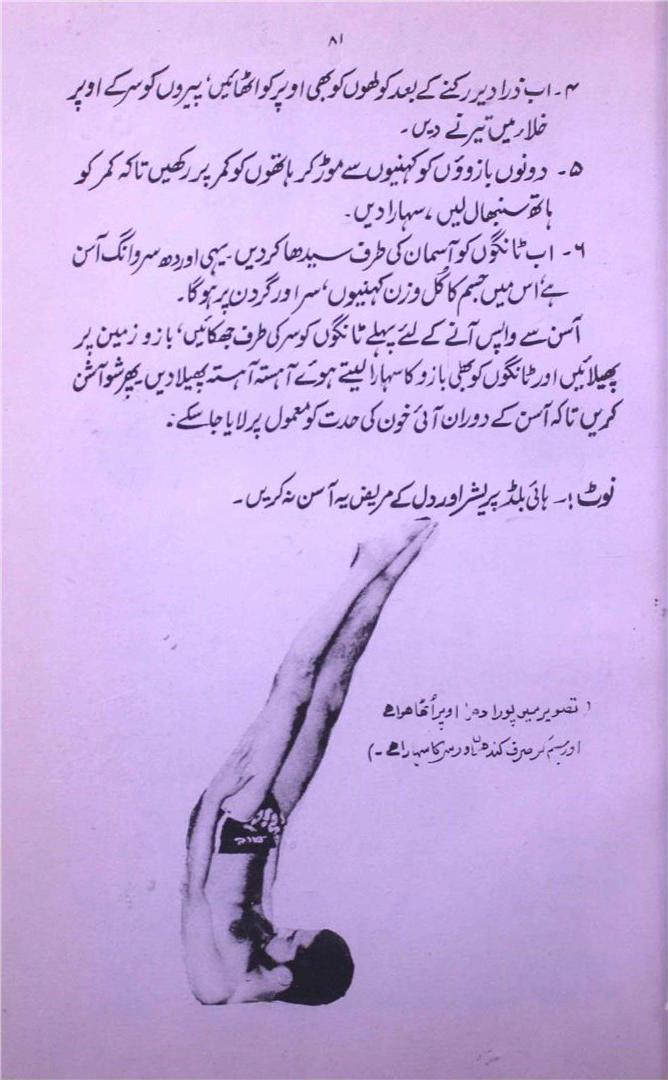 ۸۱
۴۔ اب ذرا دیر رکنے کے بعد کولھوں کو بھی اوپر کو اٹھائیں، پیروں کو سر کے اوپر
خلاء میں تیرنے دیں۔
۵۔ دونوں بازوؤں کو کہنیوں سے موڑ کر ہاتھوں کو کمر پر رکھیں تاکہ کمر کو
ہاتھ سنبھال لیں، سہارا دیں۔
۶۔ اب ٹانگوں کو آسمان کی طرف سیدھا کر دیں۔ یہی اوردھ سروانگ آسن
ہے، اس میں جسم کا کُل وزن کہنیوں، سر اور گردن پر ہوگا۔
آسن سے واپس آنے کے لئے پہلے ٹانگوں کو سر کی طرف جھکائیں، بازو زمین پر
پھیلائیں اور ٹانگوں کو بھی بازو کا سہارا لیتے ہوئے آہستہ آہستہ پھیلا دیں۔ پھر شو آسن
کریں تاکہ آسن کے دوران آئی خون کی حدت کو معمول پر لایا جا سکے۔
نوٹ :۔ ہائی بلڈ پریشر اور دل کے مریض یہ آسن نہ کریں۔
(تصویر میں پورا دھڑ اوپر اُٹھا ھوا ھے
اور جسم کو صرف کندھوں اور سر کا سہارا ھے۔)